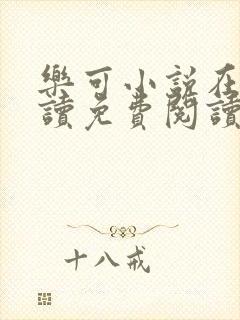 樂可小說在
讀免費閱讀
十八戒